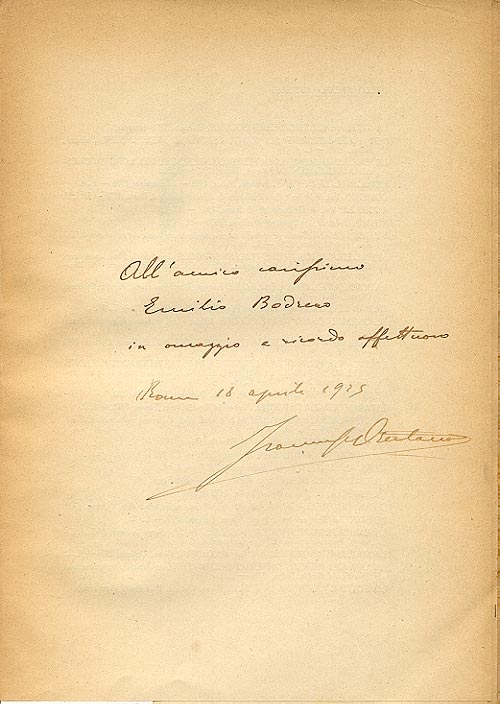 All'amico carissimo
Emilio Bodrero
in omaggio e ricordo affettuoso
Roma 18 aprile 1925
Francesco Orestano